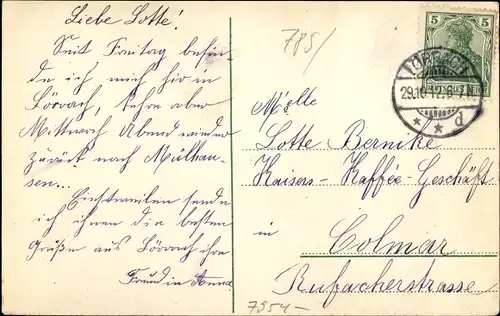 Liebe Lotte!
Seit Freitag befin-
de ich mich hir in
Lörrach, kehre aber
Mittwoch Abend wieder
zurück nach Mülhau-
sen...
Einstweilen sende
ich ihnen die besten
Grüße aus Lörrach ihre
Freundin Anna
785/
5 5
LÖRRACH
29.10.12.8-9N
* * d
Mselle
Lotte Bernike
Kaisers-Kaffée-Geschäft
in
Colmar
Rufacherstrasse
7954-